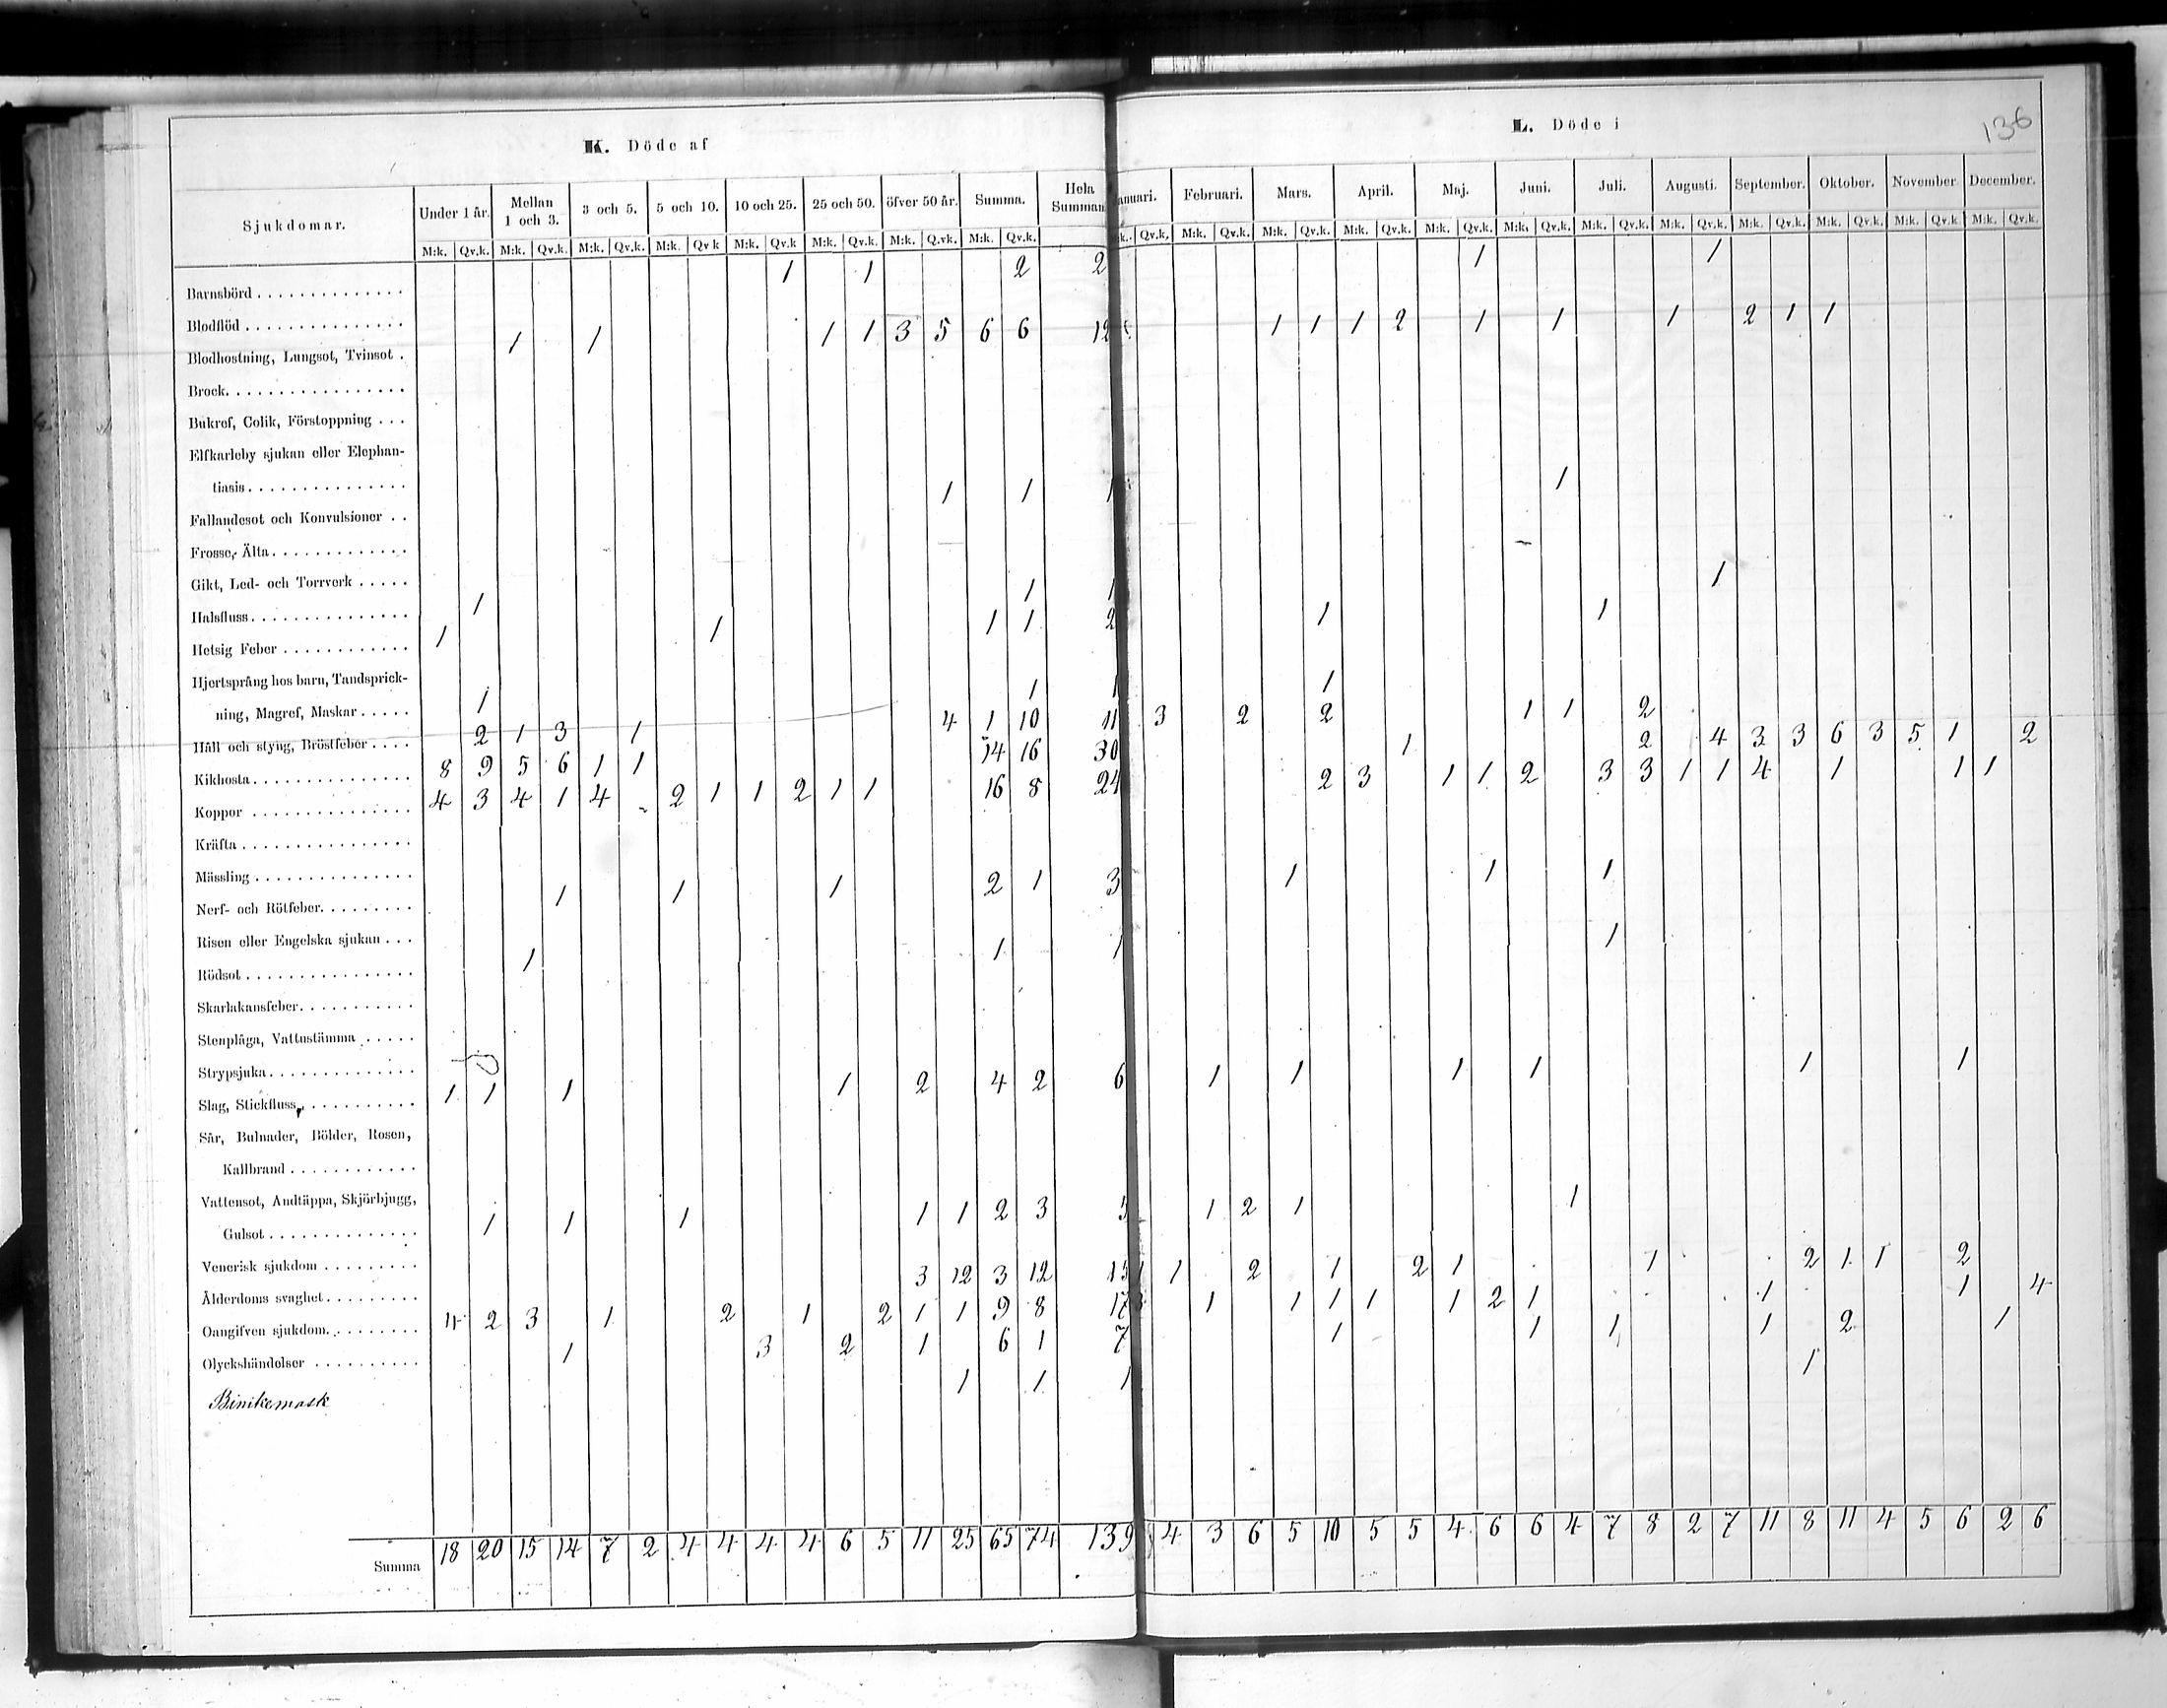 K. Döde af
L. Döde i
136
Sjukdomar. Under 1 år. Mellan 1 och 3. 3 och 5. 5 och 10. 10 och 25. 25 och 50. öfver 50 år. Summa. Hela Summan. anuari. Februari. Mars. April. Maj. Juni. Juli. Augusti. September. Oktober. November December.
M:k. Qv.k. M:k. Qv.k. M:k. Qv.k. M:k. Qv.k M:k. Qv.k M:k. Qv.k. M:k. Q.vk. M:k. Qv.k. :k. Qv.k. M:k. Qv.k. M:k. Qv.k. M:k. Qv.k. M:k. Qv.k. M:k. Qv.k. M:k. Qv.k. M:k. Qv.k. M:k. Qv.k. M:k. Qv.k. M:k. Qv.k M:k. Qv.k.
Barnsbörd 1 1 2 2 1 1
Blodflöd
Blodhostning, Lungsot, Tvinsot 1 1 1 1 3 5 6 6 12 1 1 1 2 1 1 1 2 1 1
Brock
Bukref, Colik, Förstoppning
Elfkarleby sjukan eller Elephan-
tiasis
Fallandesot och Konvulsioner 1 1 1 1
Frosso, Älta
Gikt, Led- och Torrverk
Halsfluss 1 1 1 1
Hetsig Feber 1 1 1 1 2 1 1
Hjertsprång hos barn, Tandsprick-
ning, Magref, Maskar 1 1 1 1
Håll och styng, Bröstfeber 2 1 3 1 4 1 10 11 3 2 2 1 1 2
Kikhosta 8 9 5 6 1 1 14 16 30 1 2 4 3 3 6 3 5 1 2
Koppor 4 3 4 1 4 2 1 1 2 1 1 16 8 24 2 3 1 1 2 3 3 1 1 4 1 1 1
Kräfta
Mässling
Nerf- och Rötfeber 1 1 1 2 1 3 1 1 1
Risen eller Engelska sjukan
Rödsot 1 1 1 1
Skarlakansfeber
Stenplåga, Vattustämma
Strypsjuka
Slag, Stickfluss 1 1 1 1 2 4 2 6 1 1 1 1 1 1
Sår, Bulnader, Bölder, Rosen,
Kallbrand
Vattensot, Andtäppa, Skjörbjugg,
Gulsot 1 1 1 1 1 2 3 5 1 2 1 1
Venerisk sjukdom
Ålderdoms svaghet 3 12 3 12 15 1 1 2 1 2 1 1 2 1 1 2
Oangifven sjukdom 4 2 3 1 2 1 2 1 1 9 8 17 1 1 1 1 1 2 1 1 1 4
Olyckshändelser 1 3 2 1 6 1 7 1 1 1 1 2 1
Binikemask 1 1 1 1
Summa 18 20 15 14 7 2 4 4 4 4 6 5 11 25 65 74 139 4 3 6 5 10 5 5 4 6 6 4 7 8 2 7 11 8 11 4 5 6 2 6